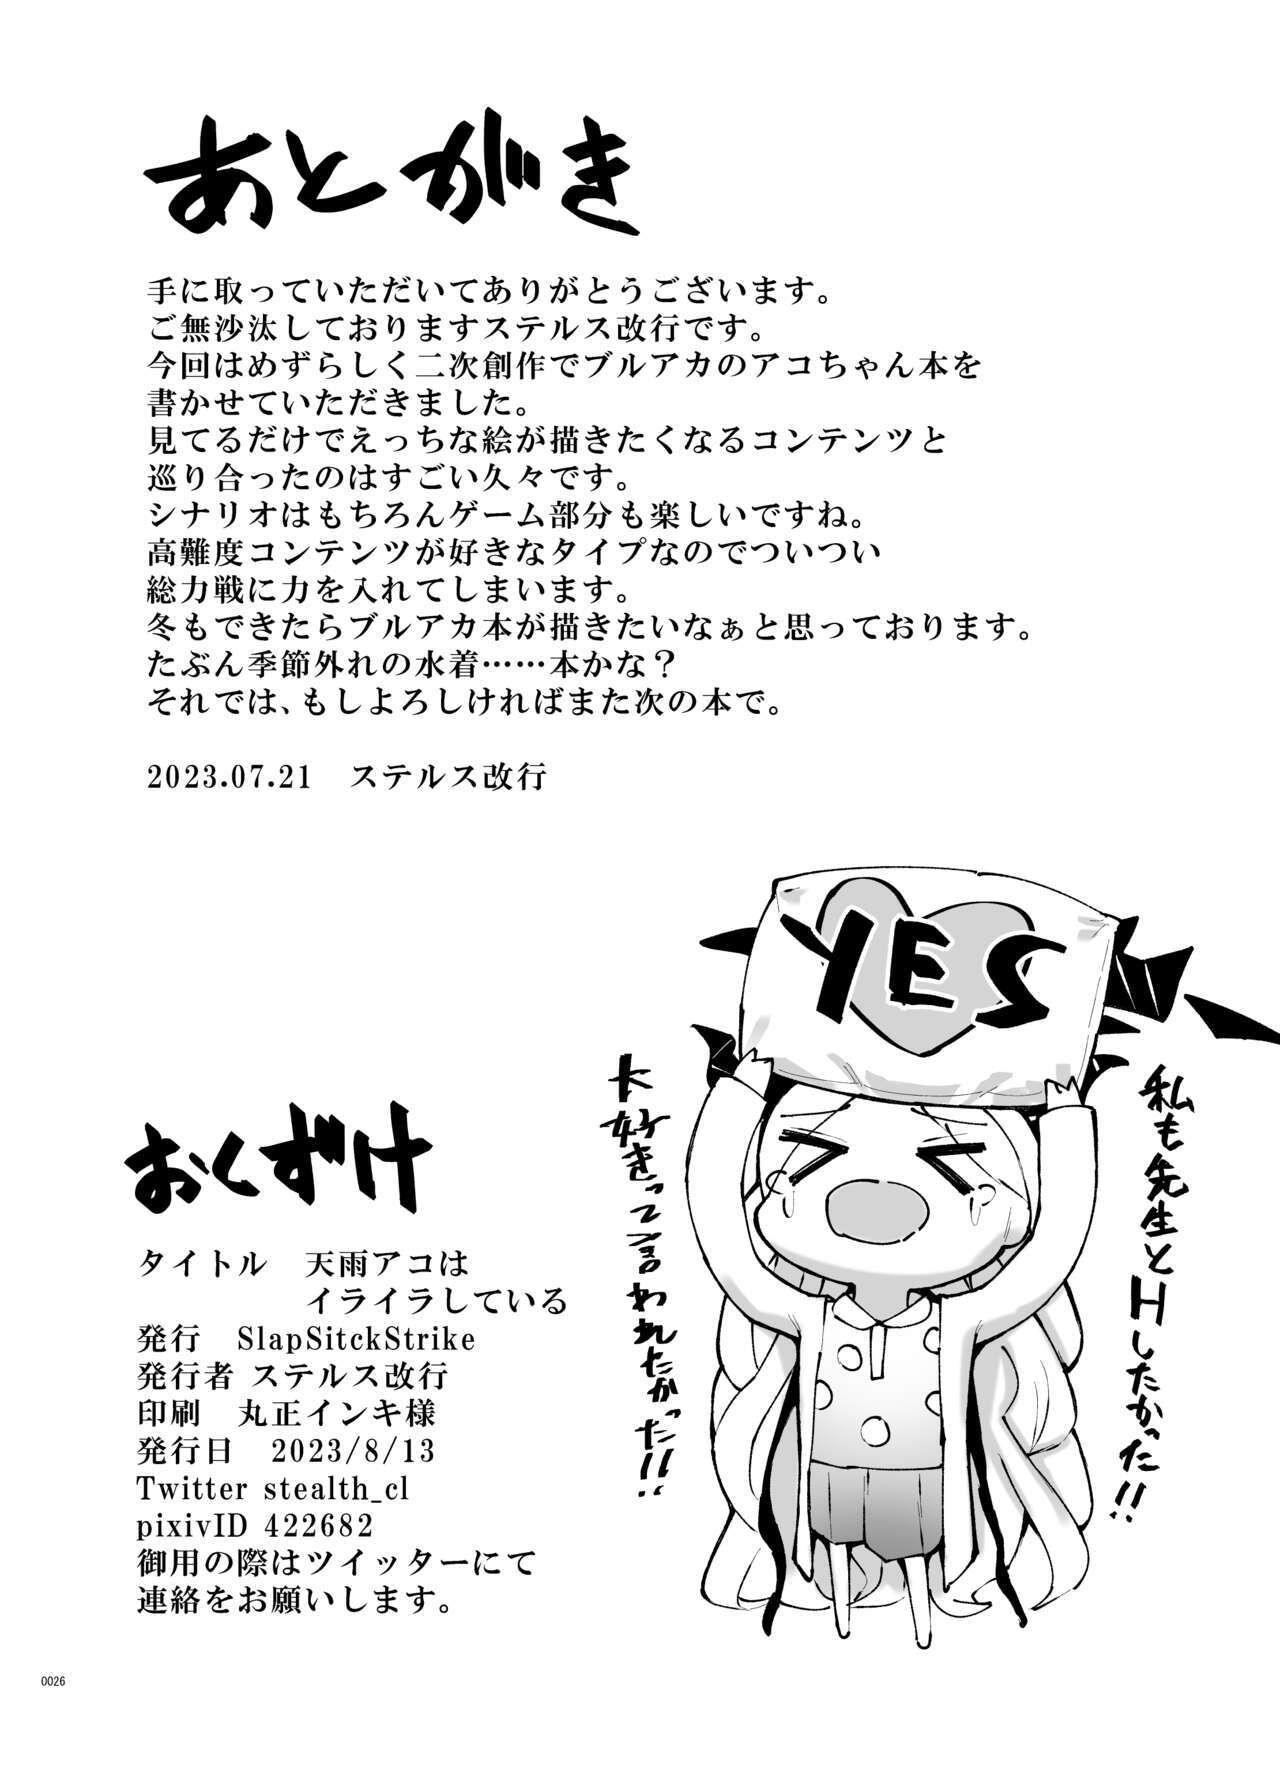 あとがき
手に取っていただいてありがとうございます。
ご無沙汰しておりますステルス改行です。
今回はめずらしく二次創作でブルアカのアコちゃん本を
書かせていただきました。
見てるだけでえっちな絵が描きたくなるコンテンツと
巡り合ったのはすごい久々です。
シナリオはもちろんゲーム部分も楽しいですね。
高難度コンテンツが好きなタイプなのでついつい
総力戦に力を入れてしまいます。
冬もできたらブルアカ本が描きたいなぁと思っております。
たぶん季節外れの水着……本かな？
それでは、もしよろしければまた次の本で。
2023.07.21　ステルス改行
YES
私も先生とHしたかった!!
大好きって言われたかった!!
おくずけ
タイトル　天雨アコは
イライラしている
発行　SlapSitckStrike
発行者 ステルス改行
印刷　丸正インキ様
発行日　2023/8/13
Twitter stealth_cl
pixivID 422682
御用の際はツイッターにて
連絡をお願いします。
0026